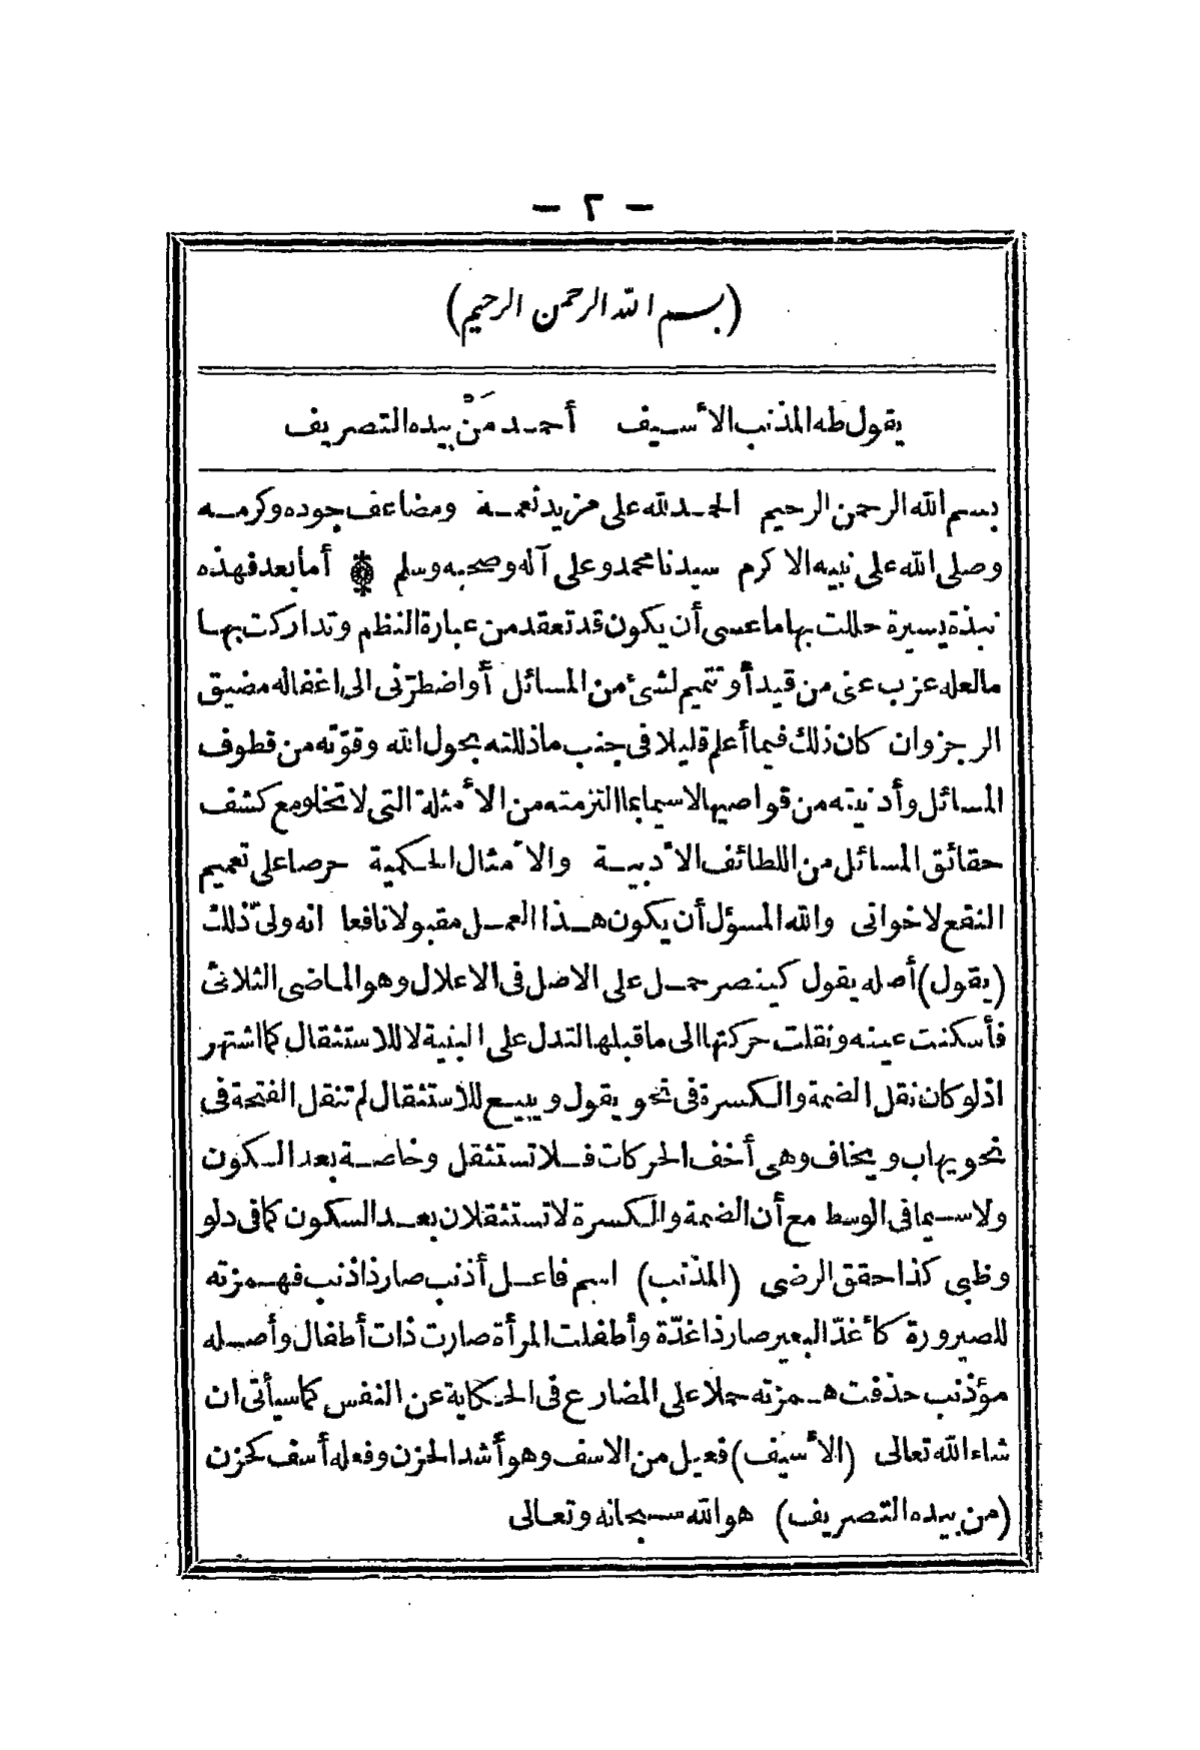 — ٢ —
(بسم الله الرحمن الرحيم)
يقول طه المذنب الأسيف أحمد مَنْ بيده التصريف
بسم الله الرحمن الرحيم الحمد لله على مزيد نعمه ومضاعف جوده وكرمه
وصلى الله على نبيه الاكرم سيدنا محمد وعلى آله وصحبه وسلم ۞ أما بعد فهذه
نبذة يسيرة حللت بها ما عسى أن يكون قد تعقد من عبارة النظم وتداركت بها
ما لعله عزب عنى من قيد أو تتميم لشئ من المسائل أو اضطرّنى الى اغفاله مضيق
الرجز وان كان ذلك فيما أعلم قليلا فى جنب ما ذللته بحول الله وقوّته من قطوف
المسائل وأدنيته من قواصيها لاسيما بما التزمته من الأمثلة التى لا تخلو مع كشف
حقائق المسائل من اللطائف الأدبية والأمثال الحكمية حرصا على تعميم
النفع لاخوانى والله المسؤل أن يكون هذا العمل مقبولا نافعا انه ولىّ ذلك
(يقول) أصله يقول كينصر حمل على الاصل فى الاعلال وهو الماضى الثلاثىّ
فأسكنت عينه ونقلت حركتها الى ما قبلها لتدل على البنية لا للاستثقال كما اشتهر
اذ لو كان نقل الضمة والكسرة فى نحو يقول ويبيع للاستثقال لم تنقل الفتحة فى
نحو يهاب ويخاف وهى أخف الحركات فلا تستثقل وخاصة بعد السكون
ولاسيما فى الوسط مع أن الضمة والكسرة لا تستثقلان بعد السكون كما فى دلو
وظبى كذا حقق الرضى (المذنب) اسم فاعل أذنب صار ذا ذنب فهمزته
للصيرورة كأغدّ البعير صار ذا غدّة وأطفلت المرأة صارت ذات أطفال وأصله
مؤذنب حذفت همزته حملا على المضارع فى الحكاية عن النفس كما سيأتى ان
شاء الله تعالى (الأسيف) فعيل من الاسف وهو أشد الحزن وفعله أسف كحزن
(من بيده التصريف) هو الله سبحانه وتعالى